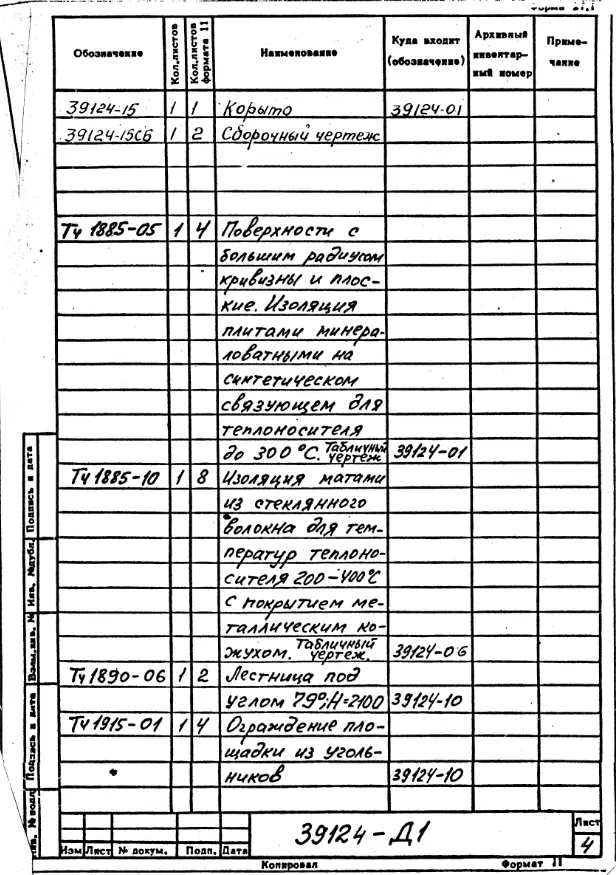 Форма 21.1
Обозначение Кол.листов Кол.листов формата 11 Наименование Куда входит (обозначение) Архивный инвентарный номер Примечание
39124-15 1 1 Корыто 39124-01
39124-15СБ 1 2 Сборочный чертеж
Тч 1885-05 1 4 Поверхности с
большим радиусом
кривизны и плос-
кие. Изоляция
плитами минера-
ловатными на
синтетическом
связующем для
теплоносителя
до 300°С. Табличный чертеж 39124-01
Тч 1885-10 1 8 Изоляция матами
из стеклянного
волокна для тем-
ператур теплоно-
сителя 200-400°С
с покрытием ме-
таллическим ко-
жухом. Табличный чертеж. 39124-06
Тч 1890-06 1 2 Лестница под
углом 79°; Н=2100 39124-10
Тч 1915-01 1 4 Ограждение пло-
щадки из уголь-
ников 39124-10
Подпись и дата
Инв. №дубл.
Взам.инв. №
Подпись и дата
Инв. № подл
39124-Д1
Лист
4
Изм Лист № докум. Подп. Дата
Копировал Формат 11